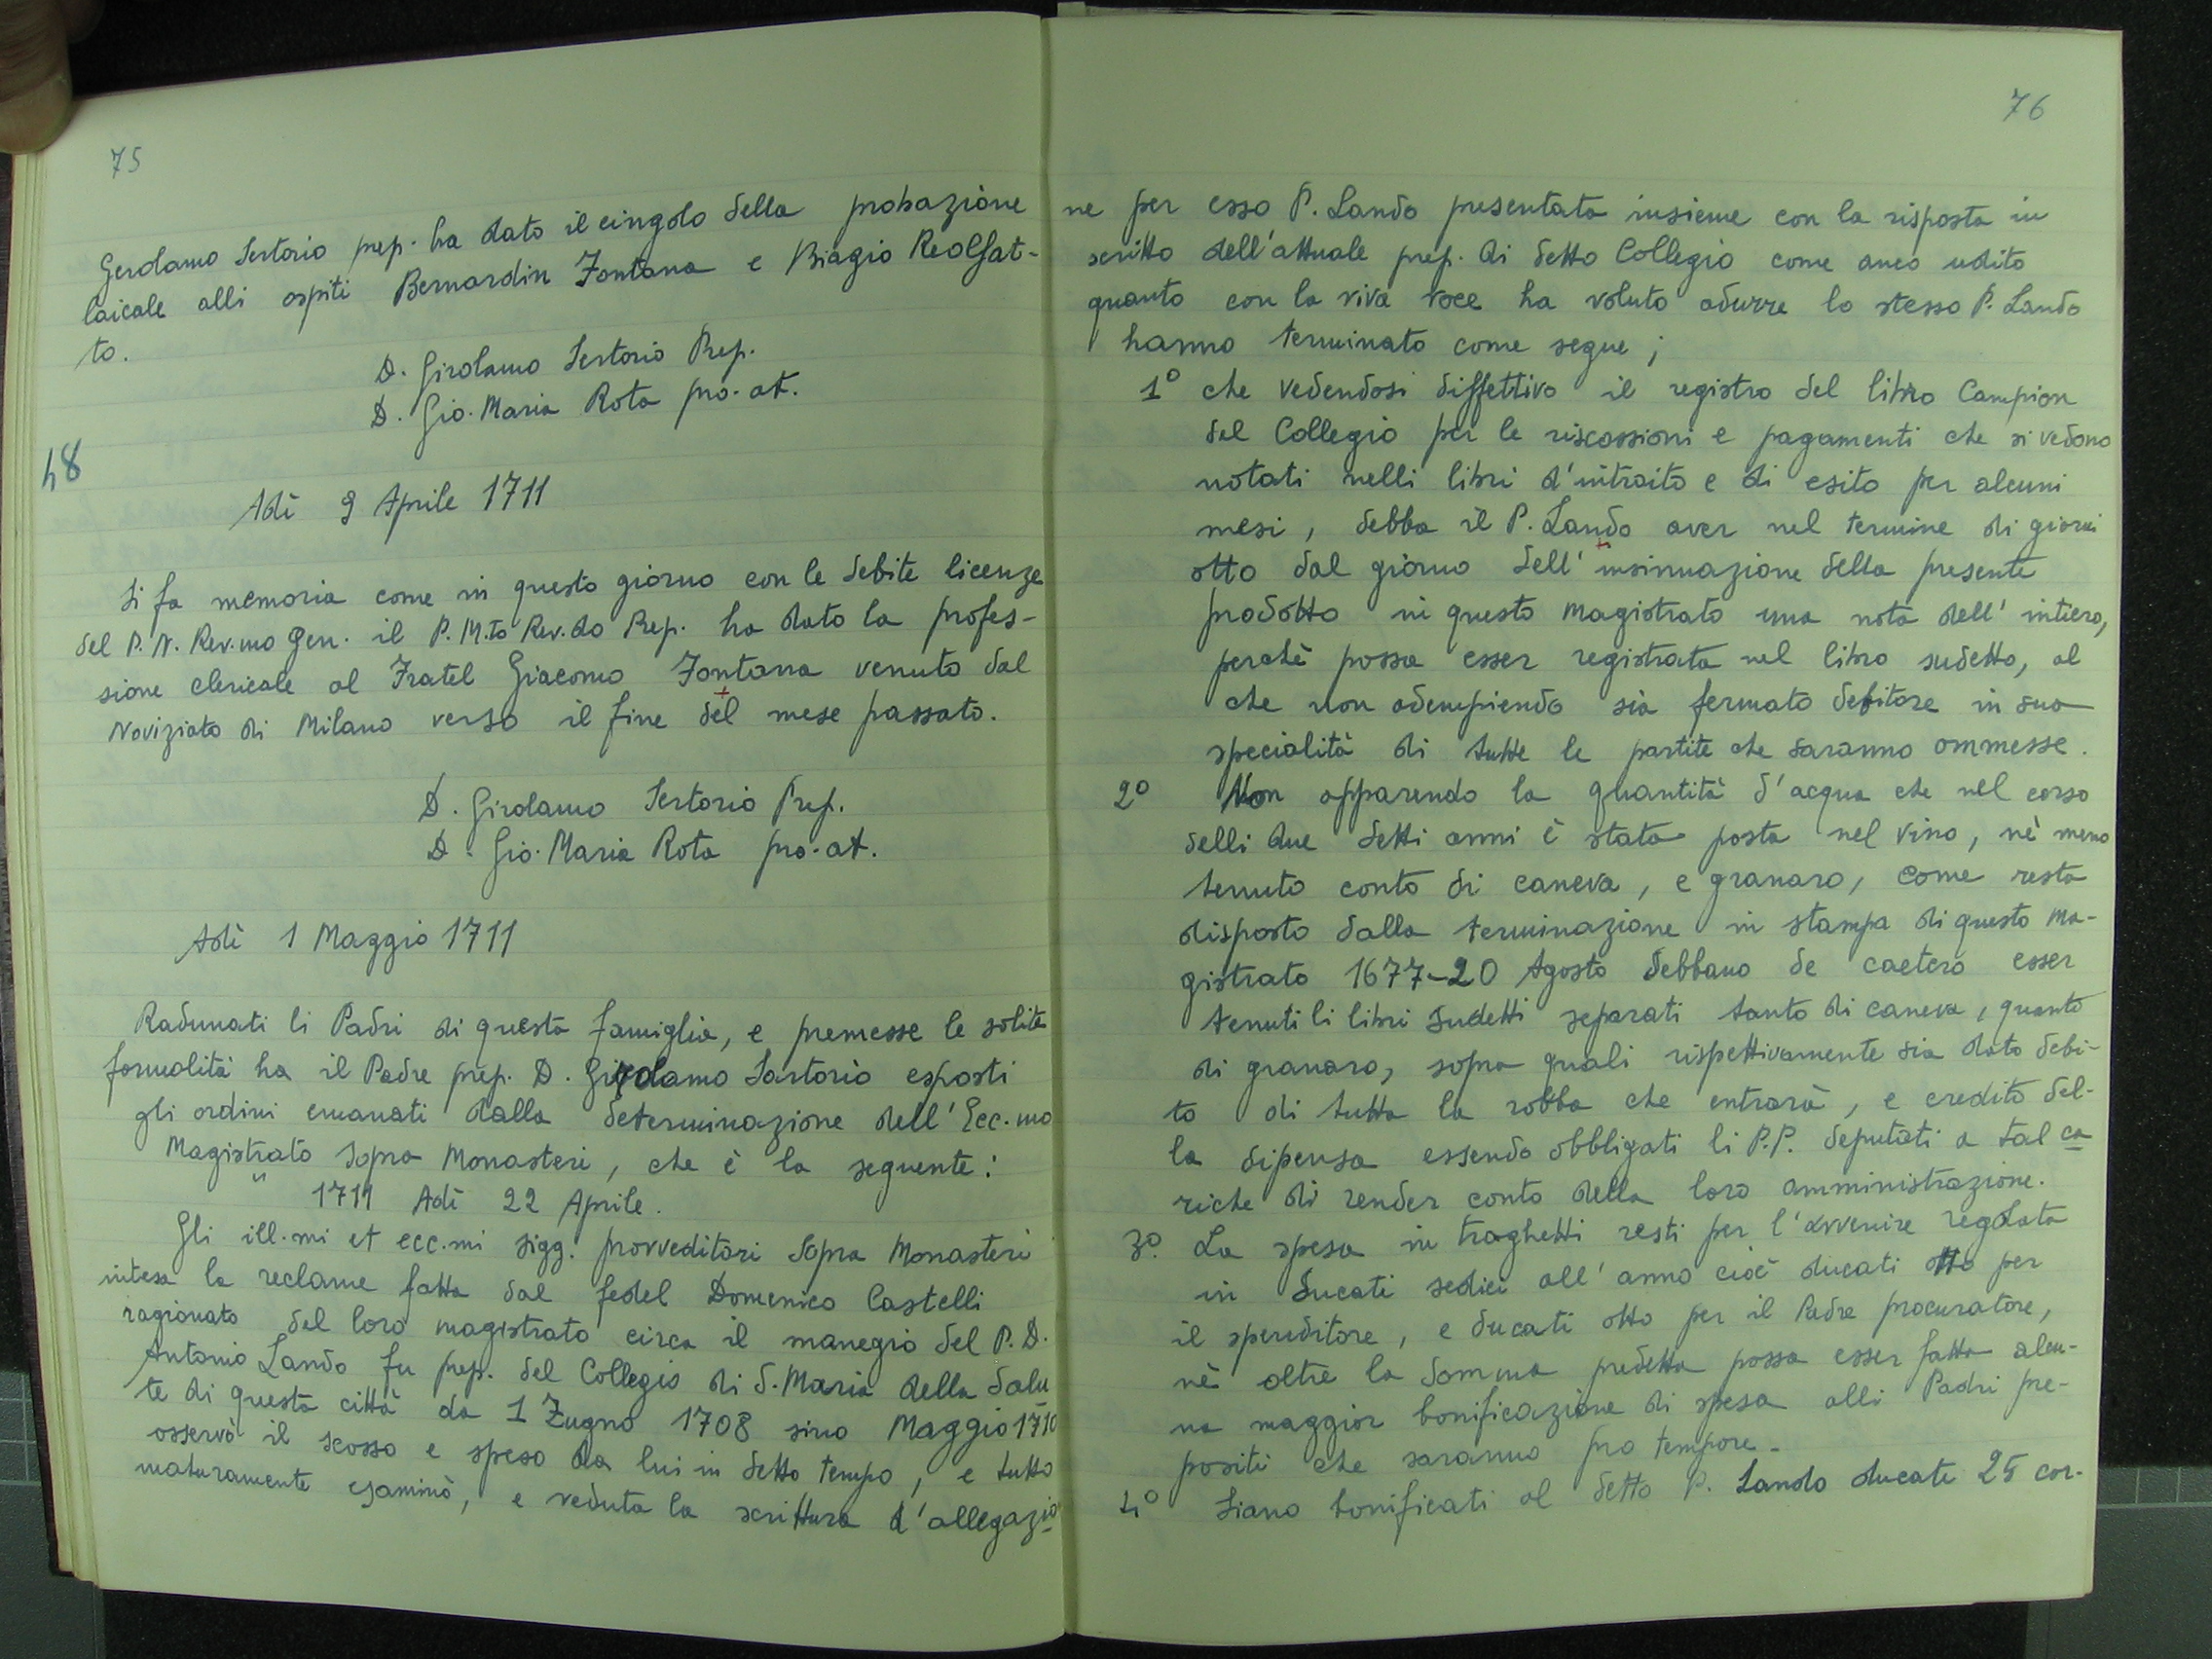 75
Gerolamo Sertorio prep. ha dato il cingolo della probazione
laicale alli ospiti Bernardin Fontana e Biagio Reolfat-
to.
D. Girolamo Sertorio Prep.
D. Gio. Maria Rota pro-at.
48
Adì 9 Aprile 1711
Si fa memoria come in questo giorno con le debite licenze
del P. N. Rev.mo Gen. il P. M.to Rev.do Prep. ha dato la profes-
sione clericale al Fratel Giacomo Fontana venuto dal
Noviziato di Milano verso il fine del mese passato.
D. Girolamo Sertorio Prep.
D. Gio. Maria Rota pro-at.
Adì 1 Maggio 1711
Radunati li Padri di questa famiglia, e premesse le solite
formalità ha il Padre prep. D. Girolamo Sartorio esposti
gli ordini emanati dalla determinazione dell'Ecc.mo
Magistrato Sopra Monasteri, che è la seguente:
" 1711 Adì 22 Aprile.
Gli ill.mi et ecc.mi sigg. provveditori Sopra Monasteri
intesa la reclame fatta dal fedel Domenico Castelli
ragionato del loro magistrato circa il manegio del P. D.
Antonio Lando fu prep. del Collegio di S. Maria della Salu
te di questa città da 1 Zugno 1708 sino Maggio 1710
osservò il scosso e speso da lui in detto tempo, e tutto
maturamente esaminò, e veduta la scrittura d'allegazio
76
ne per esso P. Lando presentata insieme con la risposta in
scritto dell'attuale prep. di detto Collegio come anco udito
quanto con la viva voce ha voluto adurre lo stesso P. Lando
hanno terminato come segue;
1° che vedendosi diffettivo il registro del libro Campion
del Collegio per le riscossioni e pagamenti che si vedono
notati nelli libri d'intraito e di esito per alcuni
mesi, debba il P. Lando aver nel termine di giorni
otto dal giorno dell'insinuazione della presente
prodotto in questo magistrato una nota dell'intiero,
perchè possa esser registrata nel libro sudetto, al
che non adempiendo sia fermato debitore in sua
specialità di tutte le partite che saranno ommesse.
2° Non apparendo la quantità d'acqua che nel corso
delli due detti anni è stata posta nel vino, nè meno
tenuto conto di caneva, e granaro, come resta
disposto dalla terminazione in stampa di questo ma-
gistrato 1677-20 Agosto debbano de caetero esser
tenuti li libri sudetti separati tanto di caneva, quanto
di granaro, sopra quali rispettivamente sia dato debi-
to di tutta la robba che entrarà, e credito del-
la dipensa essendo obbligati li P.P. deputati a tal ca
riche di render conto della loro amministrazione.
3°. La spesa in traghetti resti per l'avvenire regolata
in ducati sedici all'anno cioè ducati otto per
il spenditore, e ducati otto per il Padre procuratore,
nè oltre la somma predetta possa esser fatta alcu-
na maggior bonificazione di spesa alli Padri pre-
positi che saranno pro tempore.
4° Siano bonificati al detto P. Lando ducati 25 cor-